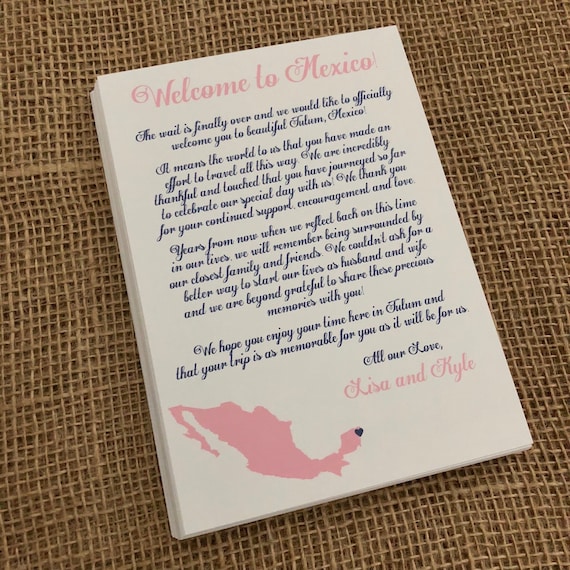 Welcome to Mexico!
The wait is finally over and we would like to officially
welcome you to beautiful Tulum, Mexico!
It means the world to us that you have made an
effort to travel all this way. We are incredibly
thankful and touched that you have journeyed so far
to celebrate our special day with us! We thank you
for your continued support, encouragement and love.
Years from now when we reflect back on this time
in our lives, we will remember being surrounded by
our closest family and friends. We couldn't ask for a
better way to start our lives as husband and wife
and we are beyond grateful to share these precious
memories with you!
We hope you enjoy your time here in Tulum and
that your trip is as memorable for you as it will be for us.
All our Love,
Lisa and Kyle